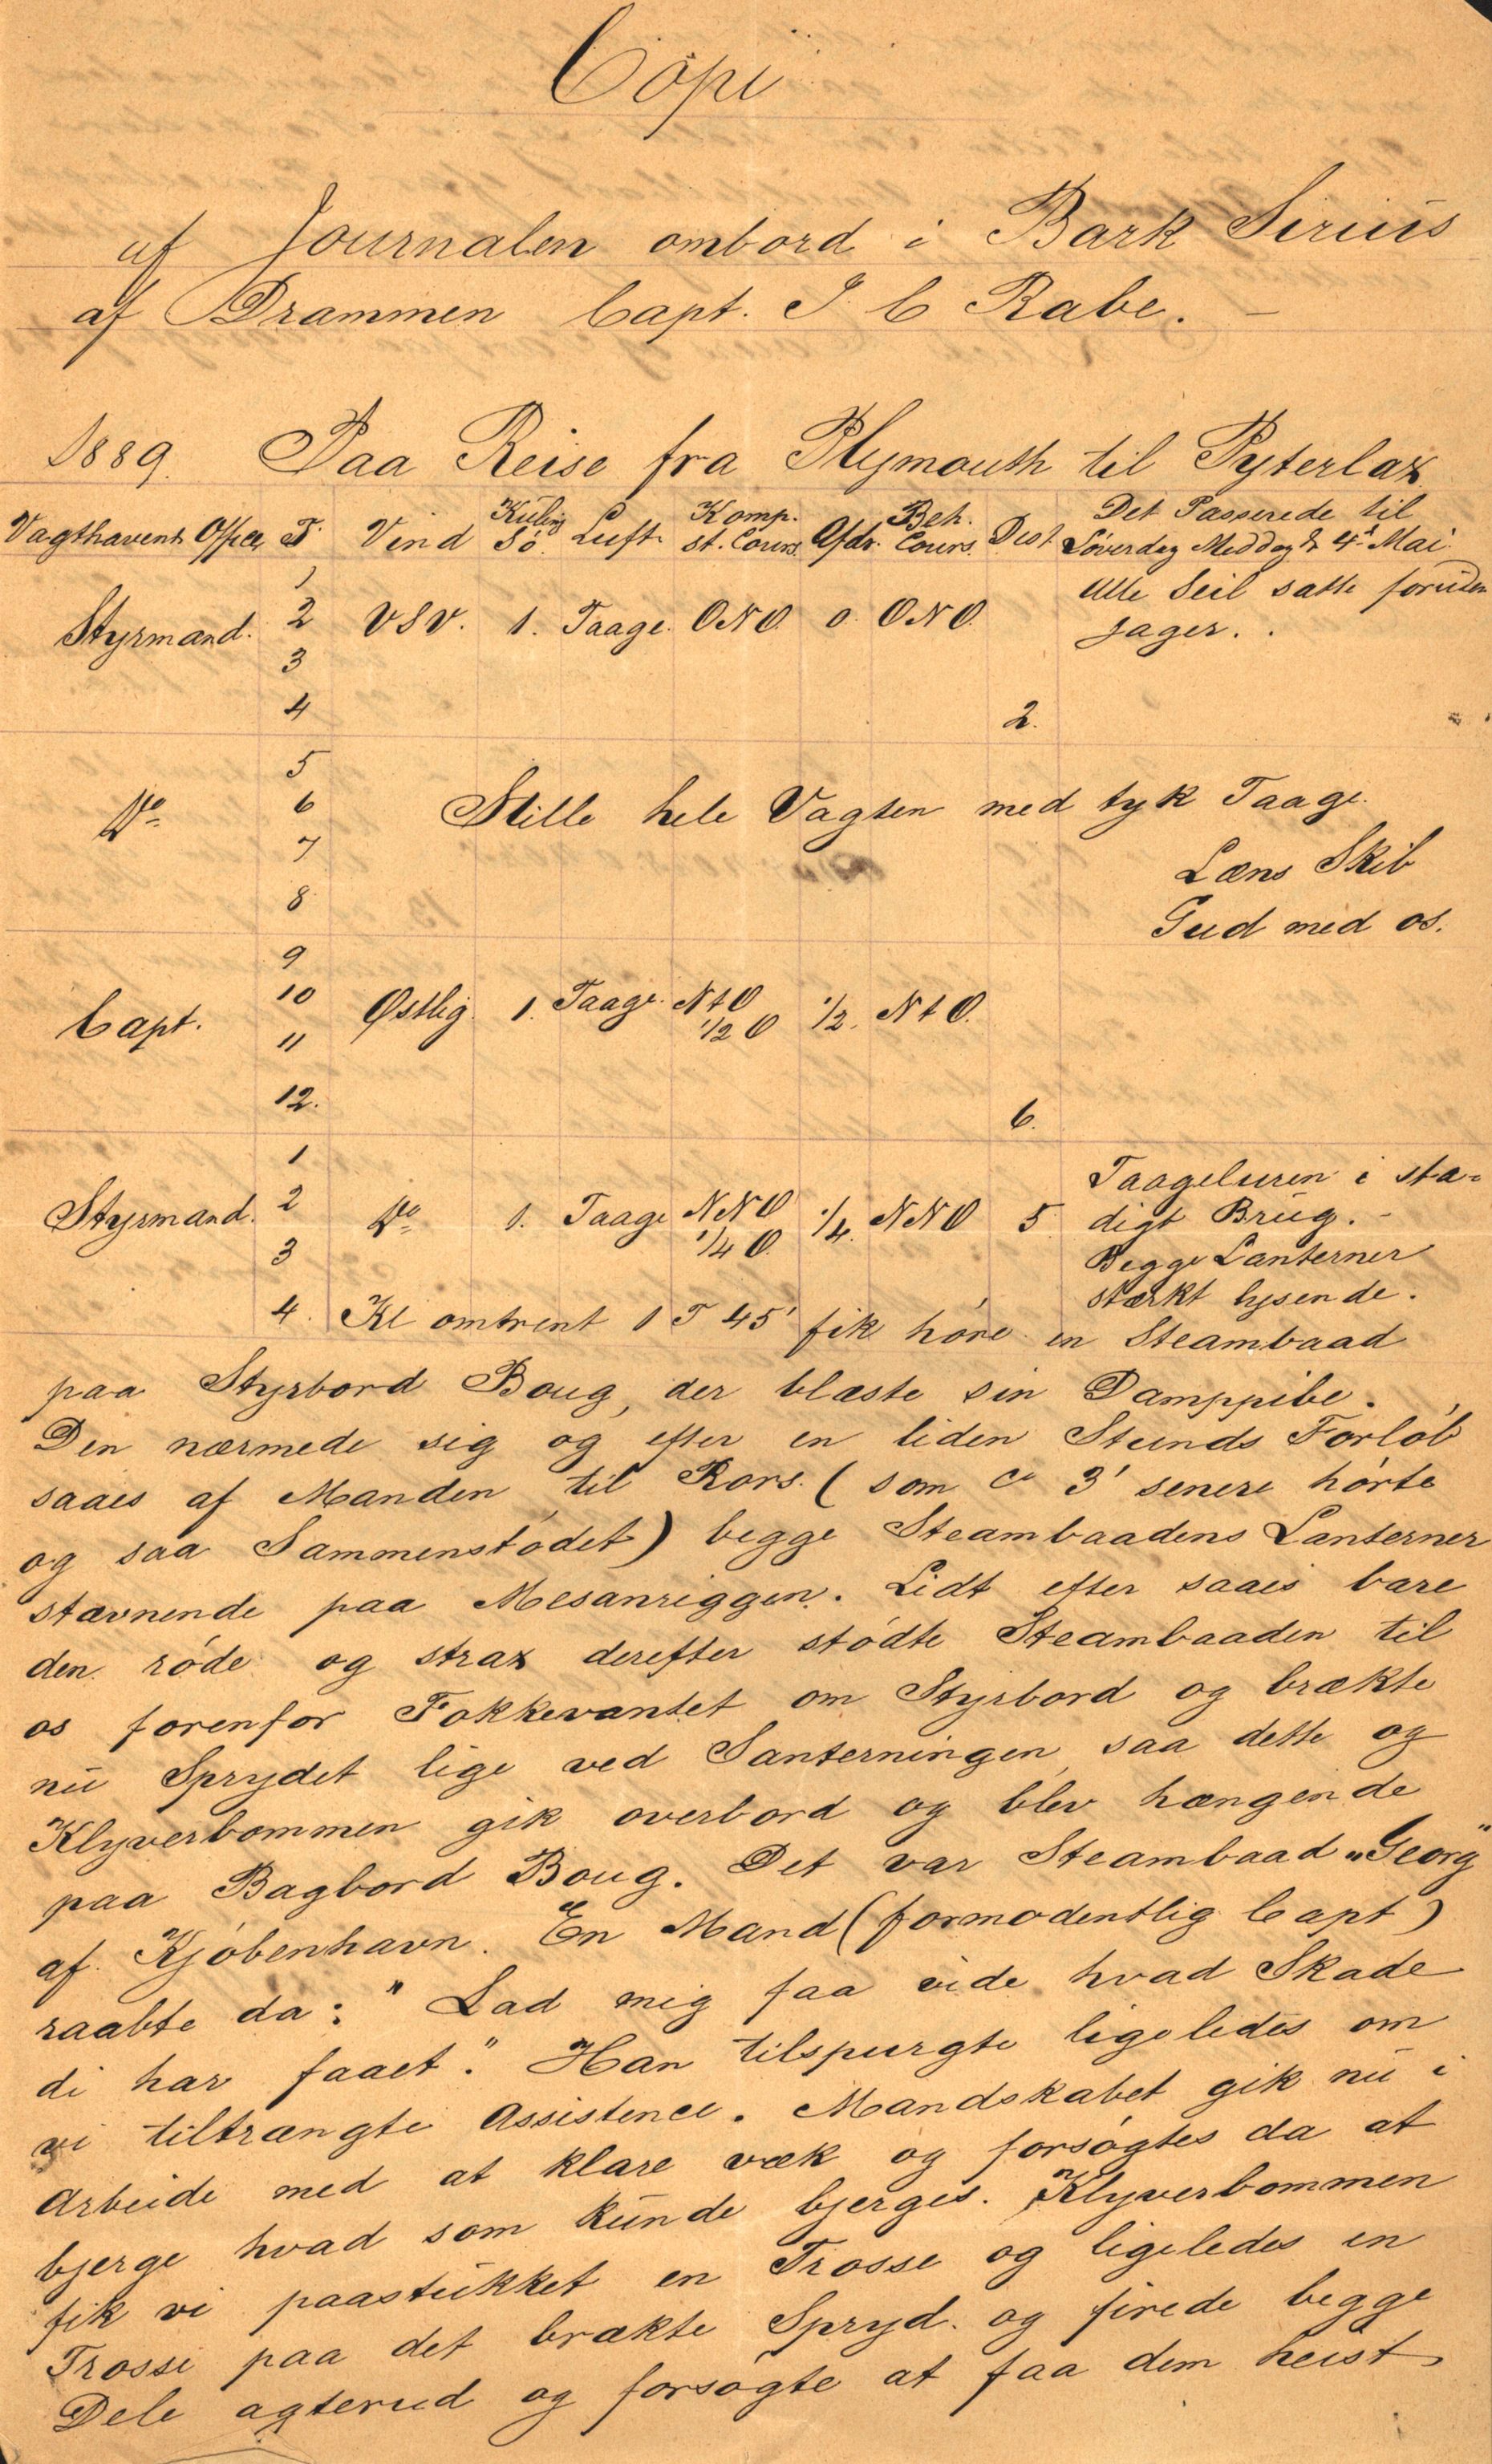 Copi
af Journalen ombord i Bark Sirius
af Drammen Capt. J C Rabe. –
1889. Paa Reise fra Plymouth til Pyterlax
Vagthavende Officer T. Vind Kuling Sö. Luft Komp. st. Cours. Afdr. Beh. Cours. Dist. Det Passerede til Löverdag Meddag d. 4d Mai.
1
Styrmand. 2 VSV. 1. Taage. ONO. 0. ONO. Alle Seil satte foruden
3 Jager.
4 2.
5
Do 6 Stille hele Vagten med tyk Taage.
7 Læns Skib
8 Gud med os.
9
Capt. 10 Østlig. 1. Taage. NtO 1/2 O 1/2. NtO.
11
12. 6.
1
Styrmand. 2 Do 1. Taage NNO 1/4 O. 1/4. NNO 5. Taageluren i sta-
digt Brug. –
3 Begge Lanterner
stærkt lysende.
4. Kl omtrent 1 T 45' fik höre en Steambaad
paa Styrbord Boug, der blæste sin Damppibe.
Den nærmede sig og efter en liden Stunds Forlöb
saaes af Manden til Rors. (som ca 3' senere hörte
og saa Sammenstödet) begge Steambaadens Lanterner
stævnende paa Mesanriggen. Lidt efter saaes bare
den röde og strax derefter stödte Steambaaden til
os forenfor Fokkevantet om Styrbord og brækte
nu Sprydet lige ved Santerningen, saa dette og
Klyverbommen gik overbord og blev hængende
paa Bagbord Boug. Det var Steambaad "Georg"
af Kjöbenhavn. En Mand (formodentlig Capt)
raabte da: "Lad mig faa vide hvad Skade
di har faaet." Han tilspurgte ligeledes om
vi tiltrængte Assistence. Mandskabet gik nu i
Arbeide med at klare væk og forsögtes da at
bjerge hvad som kunde bjerges. Klyverbommen
fik vi paastukket en Trosse og ligeledes en
Trosse paa det brækte Spryd. og firede begge
Dele agterud og forsögte at faa dem heist